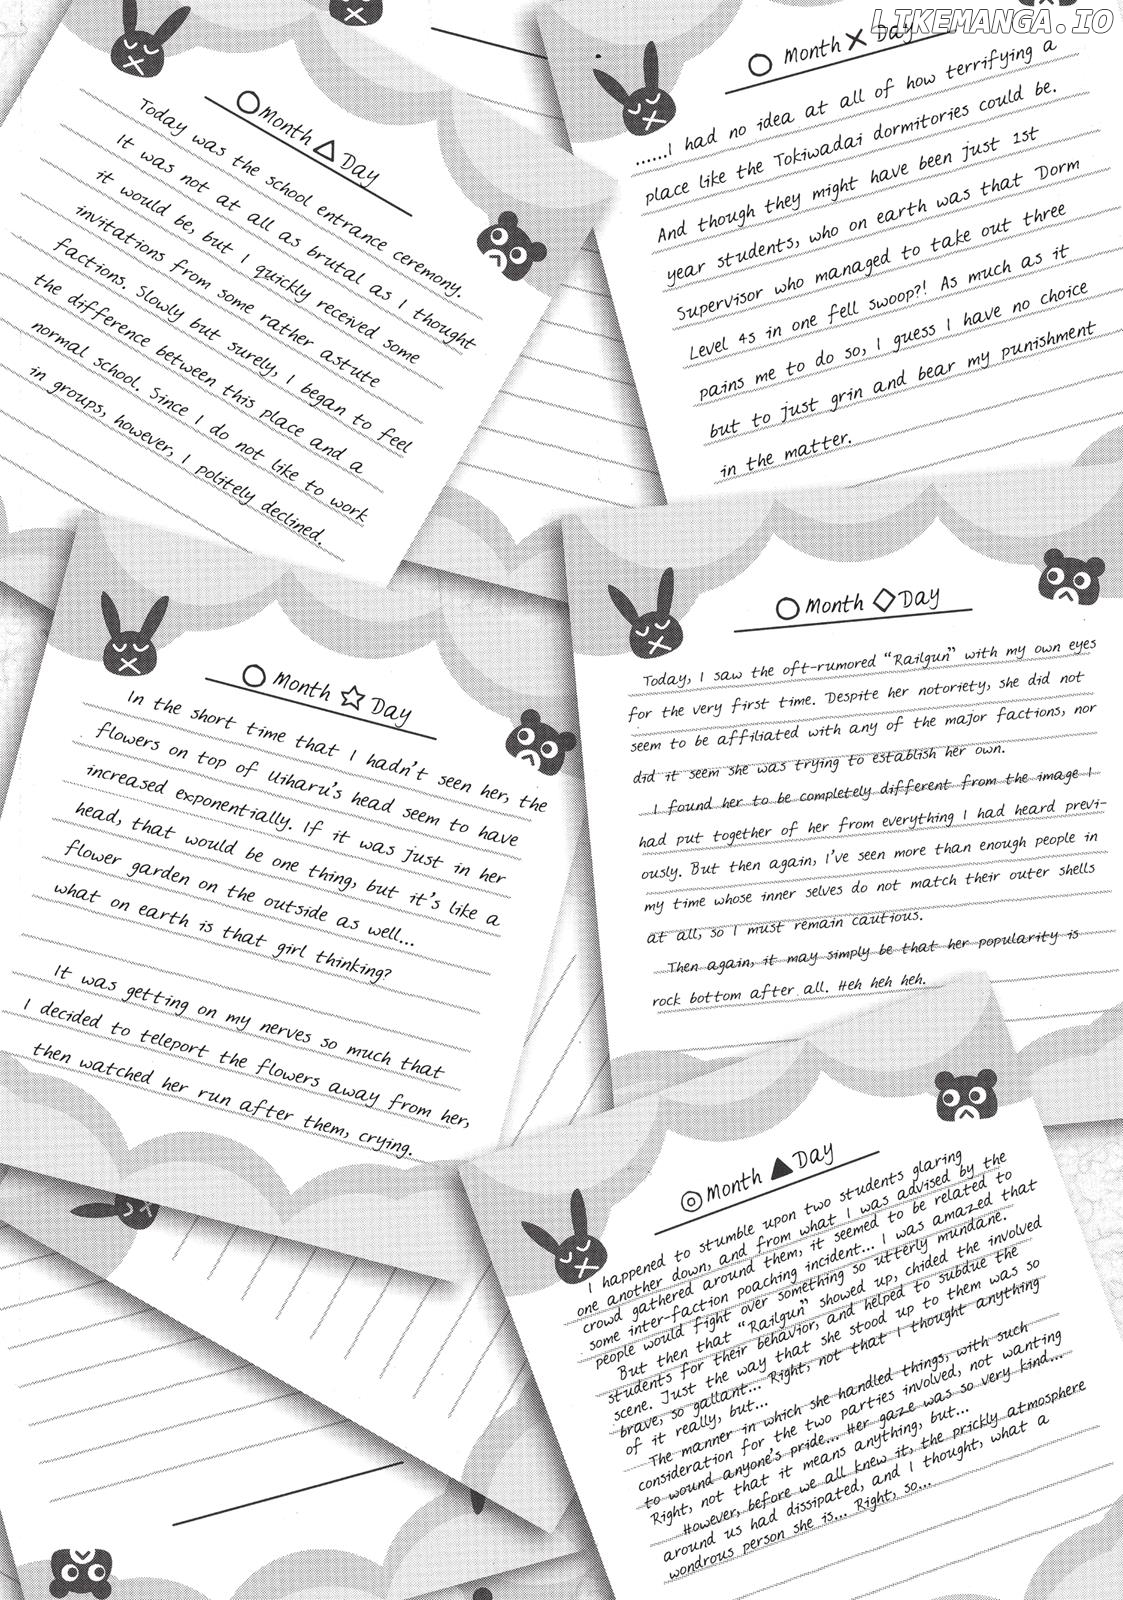 LIKEMANGA.IO
○Month △Day
Today was the school entrance ceremony.
It was not at all as brutal as I thought
it would be, but I quickly received some
invitations from some rather astute
factions. Slowly but surely, I began to feel
the difference between this place and a
normal school. Since I do not like to work
in groups, however, I politely declined.
○ Month ✕ Day
......I had no idea at all of how terrifying a
place like the Tokiwadai dormitories could be.
And though they might have been just 1st
year students, who on earth was that Dorm
Supervisor who managed to take out three
Level 4s in one fell swoop?! As much as it
pains me to do so, I guess I have no choice
but to just grin and bear my punishment
in the matter.
○ Month ☆ Day
In the short time that I hadn't seen her, the
flowers on top of Uiharu's head seem to have
increased exponentially. If it was just in her
head, that would be one thing, but it's like a
flower garden on the outside as well...
what on earth is that girl thinking?
It was getting on my nerves so much that
I decided to teleport the flowers away from her,
then watched her run after them, crying.
○Month ◇Day
Today, I saw the oft-rumored "Railgun" with my own eyes
for the very first time. Despite her notoriety, she did not
seem to be affiliated with any of the major factions, nor
did it seem she was trying to establish her own.
I found her to be completely different from the image I
had put together of her from everything I had heard previ-
ously. But then again, I've seen more than enough people in
my time whose inner selves do not match their outer shells
at all, so I must remain cautious.
Then again, it may simply be that her popularity is
rock bottom after all. Heh heh heh.
◎Month ▲Day
I happened to stumble upon two students glaring
one another down, and from what I was advised by the
crowd gathered around them, it seemed to be related to
some inter-faction poaching incident... I was amazed that
people would fight over something so utterly mundane.
But then that "Railgun" showed up, chided the involved
students for their behavior, and helped to subdue the
scene. Just the way that she stood up to them was so
brave, so gallant... Right, not that I thought anything
of it really, but...
The manner in which she handled things, with such
consideration for the two parties involved, not wanting
to wound anyone's pride... Her gaze was so very kind...
Right, not that it means anything, but...
However, before we all knew it, the prickly atmosphere
around us had dissipated, and I thought, what a
wondrous person she is... Right, so...